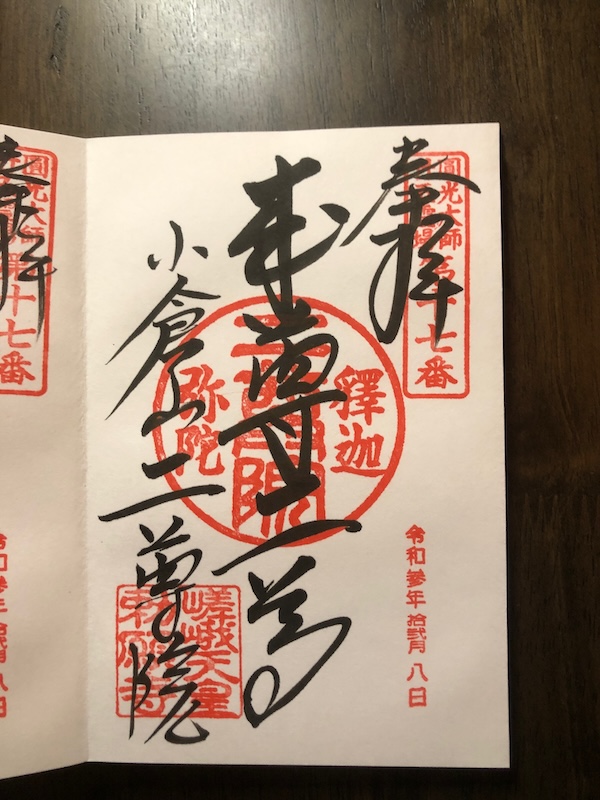 奉拝
圓光大師
霊場
第十七番
本尊二尊
釋迦
二尊院
弥陀
小倉山二尊院
嵯峨天皇
勅願寺
令和参年拾弐月八日
奉拝
圓光大師
第十七番